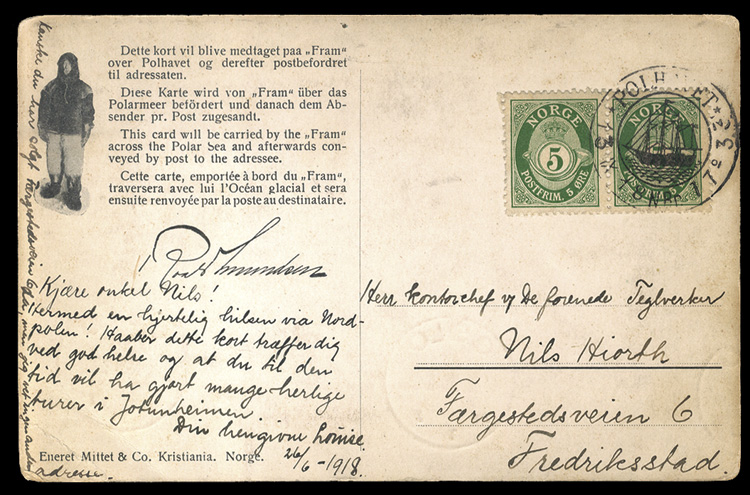 Dette kort vil blive medtaget paa „Fram“
over Polhavet og derefter postbefordret
til adressaten.
Diese Karte wird von „Fram“ über das
Polarmeer befördert und danach dem Ab-
sender pr. Post zugesandt.
This card will be carried by the „Fram“
across the Polar Sea and afterwards con-
veyed by post to the adressee.
Cette carte, emportée à bord du „Fram“,
traversera avec lui l'Océan glacial et sera
ensuite renvoyée par la poste au destinataire.
Roald Amundsen
Kjære onkel Nils!
Hermed en hjertelig hilsen via Nord-
polen! Haaber dette kort træffer dig
ved god helse og at du til den
tid vil ha gjort mange herlige
turer i Jotunheimen.
Din hengivne Louise.
26/6-1918.
Eneret Mittet & Co. Kristiania. Norge.
kanske du har solgt Færgestedsveien 6
men jeg vet ingen anden
adresse.
NORGE
5
POSTFRIM. 5 ØRE
NORGE
POLHAVET
Herr kontorchef v/ De forenede Teglverker
Nils Hiorth
Færgestedsveien 6
Fredriksstad.